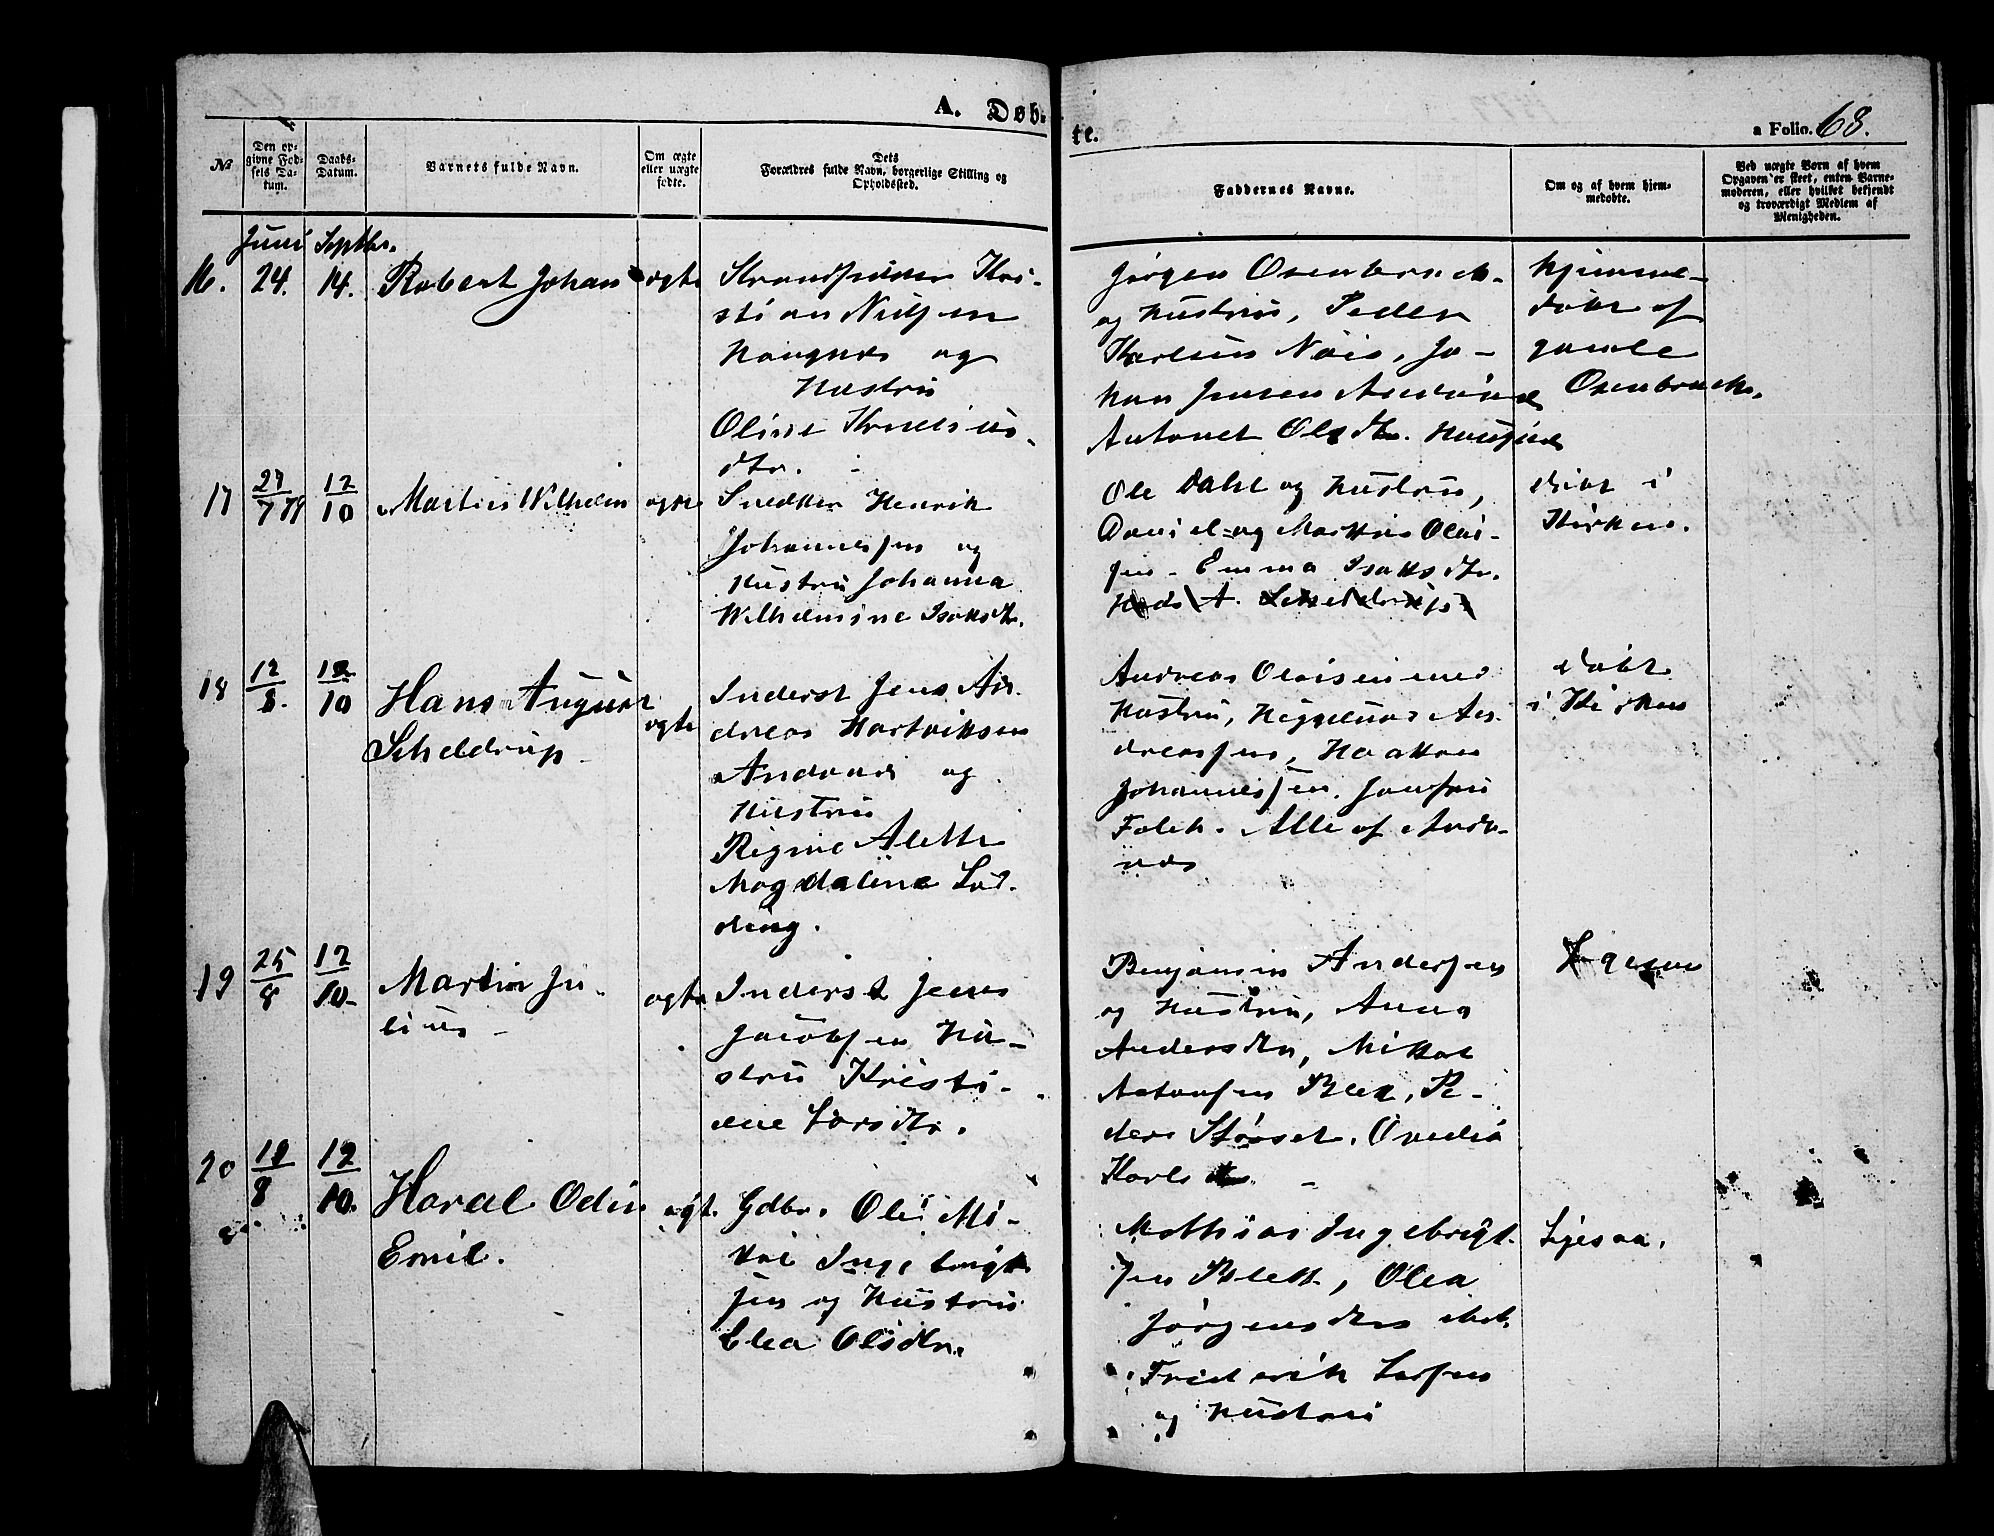 A. Døb-
te.
a Folio. 68.
№
Den op-
givne Fød-
sels Da-
tum.
Daabs-
Datum.
Barnets fulde Navn.
Om ægte
eller uægte
fødte.
Dets
Forældres fulde Navn, borgerlige Stilling og
Opholdssted.
Faddernes Navne.
Om og af hvem hjem-
medøbte.
Ved uægte Børn af hvem
Opgaven er skeet, enten Barne-
moderen, eller hvilket bekjendt
og troværdigt Medlem af
Menigheden.
Juni Septbr.
16. 24. 14. Robert Johan ægte
Strandsidder Kri-
stian Nilsen
Haugnes og
Hustru
Oline Kornelius-
dtr.
Jørgen Osenbroch
og Hustru, Peder
Karlsen Nøis, Jo-
han Jensen Andenes
Antonet Olsdtr. Haugnes
hjemme-
døbt af
gamle
Osenbroch.
17 27/7 79 12/10 Martin Wilhelm ægte
Snedker Henrik
Johannessen og
Hustru Johanna
Wilhelmine Isaksdtr.
Ole Dahl og Hustru,
Daniel og Martin Olai-
sen - Emma Isaksdtr.
døbt i
Kirken.
18 12/8. 12/10 Hans August
Scheldrup ægte
Inderst Jens An-
dreas Hartviksen
Andenes og
Hustru
Regine Alette
Magdaline Lod-
ding.
Andreas Olaisen med
Hustru, Heggelund An-
dreassen, Haakon
Johannessen. Jonson
Falch. Alle af Ande-
nes
døbt
i Kirken
19 25/8 12/10. Martin Ju-
lius - ægte
Inderst Jens
Jacobsen Hu-
stru Kristi-
ane Larsdtr.
Benjamin Andersen
og Hustru, Anna
Andersdtr, Mikal
Antonsen Blek, Pe-
der Støset, Ovedia
Karlsdtr. -
Ligesaa
20 18/8 12/10. Harael Odin
Emil. ægt.
Gdbr. Ole Mi-
kal Ingebrigt-
sen og Hustru
Elea Olsdtr.
Mathias Ingebrigt-
sen Blek, Olea
Jørgensdtr ibid.
Frederik Larsen
og Hustru
Ligesaa.